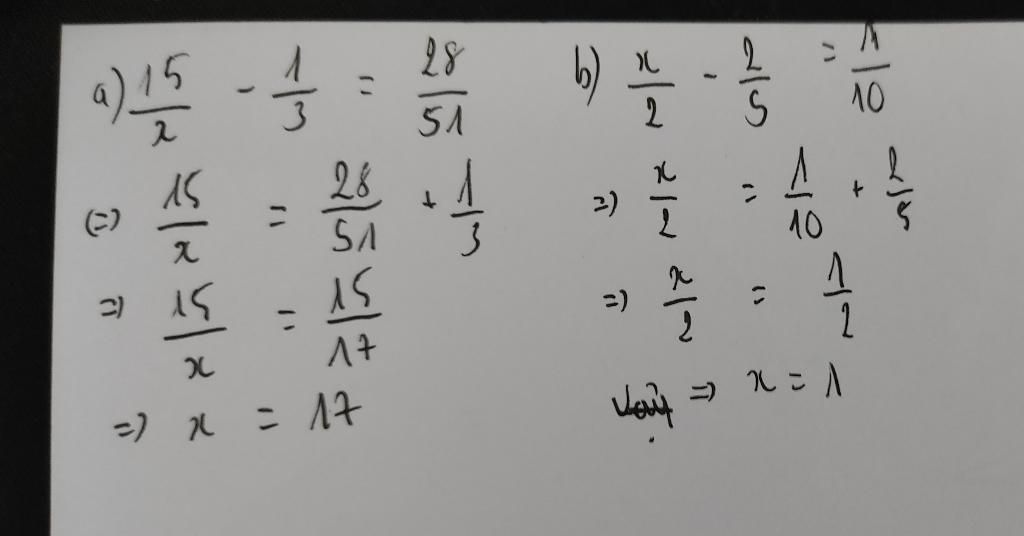 a) 15/x - 1/3 = 28/51
(=) 15/x = 28/51 + 1/3
=) 15/x = 15/17
=) x = 17
b) x/2 - 2/5 = 1/10
=) x/2 = 1/10 + 2/5
=) x/2 = 1/2
=) x = 1